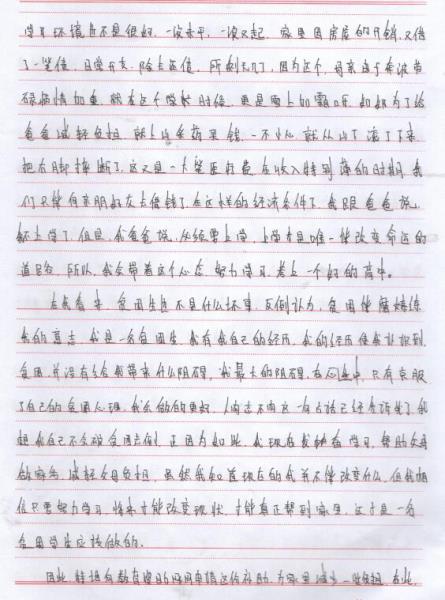 学习环境也不是很好。一波未平，一波又起。家里因房屋的开销，又借
了一笔债，日常开支，除去还债，所剩无几了，因为这个，母亲由于
病情加重，就在这个学校时候，更是雪上加霜呀，妈妈为了给
爸爸减轻负担，就上山采药卖钱，一不小心就从山下滚了下来
把右脚摔断了，这又是一大笔医药费，在收入特别薄的时期，我
们只能向亲朋好友去借钱了，在这样的经济条件下，我跟爸爸说
不上学了，但是，我爸爸说，必须要上学，上学才是唯一能改变命运的
道路，所以，我会带着这个心态，努力学习，考上一个好的高中。
在我看来，贫困生并不是什么坏事，反倒认为，贫困能磨练
我的意志，我是一名贫困生，我有我自己的经历，我的经历使我认识到
贫困并没有给我带来什么阻碍，我最大的阻碍，在心中，只有克服
了自己的贫困心理，我会做的更好，人穷志不穷这一句古话已经告诉了我
我自己不会被贫困击倒，正因为如此，我现在我好好学习，帮助父母
做家务，减轻父母负担，虽然我知道现在的我并不能改变什么，但我相
信只要努力学习，将来才能改变现状，才能真正帮到家里，这才是一名
贫困学生应该做的。
因此，特想向教育资助 申请这份补助，为家里减少一些负担，在此，